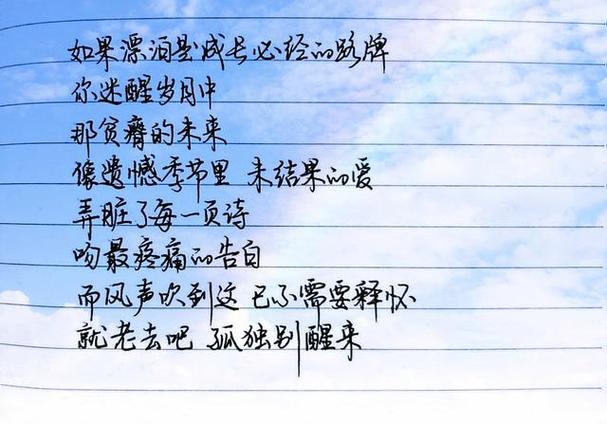 如果漂泊是成长必经的路牌
你迷醒岁月中
那贫瘠的未来
像遗憾季节里 未结果的爱
弄脏了每一页诗
吻最疼痛的告白
而风声吹到这 已不需要释怀
就老去吧 孤独别醒来